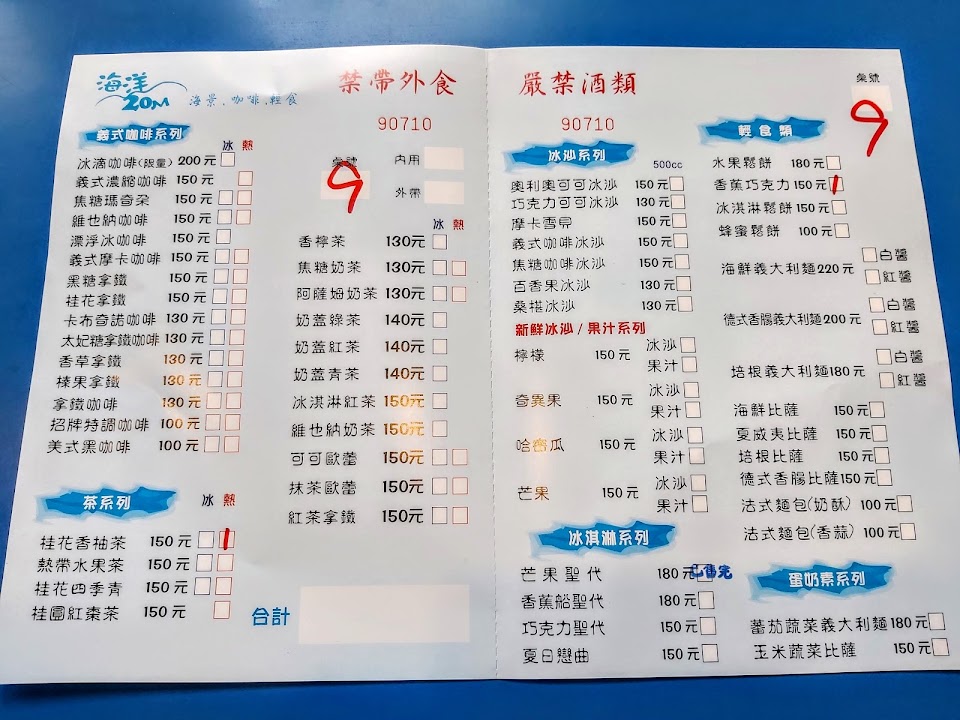 海洋
20M
海景、咖啡、輕食
禁帶外食
90710
義式咖啡系列
冰 熱
冰滴咖啡(限量) 200元
義式濃縮咖啡 150元
焦糖瑪奇朵 150元
維也納咖啡 150元
漂浮冰咖啡 150元
義式摩卡咖啡 150元
黑糖拿鐵 150元
桂花拿鐵 150元
卡布奇諾咖啡 130元
太妃糖拿鐵咖啡 130元
香草拿鐵 130元
榛果拿鐵 130元
拿鐵咖啡 130元
招牌特調咖啡 100元
美式黑咖啡 100元
茶系列
冰 熱
桂花香柚茶 150元 1
熱帶水果茶 150元
桂花四季青 150元
桂圓紅棗茶 150元
桌號
9
內用
外帶
冰 熱
香檸茶 130元
焦糖奶茶 130元
阿薩姆奶茶 130元
奶蓋綠茶 140元
奶蓋紅茶 140元
奶蓋青茶 140元
冰淇淋紅茶 150元
維也納奶茶 150元
可可歐蕾 150元
抹茶歐蕾 150元
紅茶拿鐵 150元
合計
嚴禁酒類
90710
冰沙系列
500cc
奧利奧可可冰沙 150元
巧克力可可冰沙 130元
摩卡雪貝 150元
義式咖啡冰沙 150元
焦糖咖啡冰沙 150元
百香果冰沙 130元
桑椹冰沙 130元
新鮮冰沙/果汁系列
檸檬 150元 冰沙
果汁
奇異果 150元 冰沙
果汁
哈密瓜 150元 冰沙
果汁
芒果 150元 冰沙
果汁
冰淇淋系列
芒果聖代 180元 已售完
香蕉船聖代 180元
巧克力聖代 150元
夏日戀曲 150元
桌號
9
輕食類
水果鬆餅 180元
香蕉巧克力 150元 1
冰淇淋鬆餅 150元
蜂蜜鬆餅 100元
海鮮義大利麵 220元 白醬
紅醬
德式香腸義大利麵 200元 白醬
紅醬
培根義大利麵 180元 白醬
紅醬
海鮮比薩 150元
夏威夷比薩 150元
培根比薩 150元
德式香腸比薩 150元
法式麵包(奶酥) 100元
法式麵包(香蒜) 100元
蛋奶素系列
蕃茄蔬菜義大利麵 180元
玉米蔬菜比薩 150元